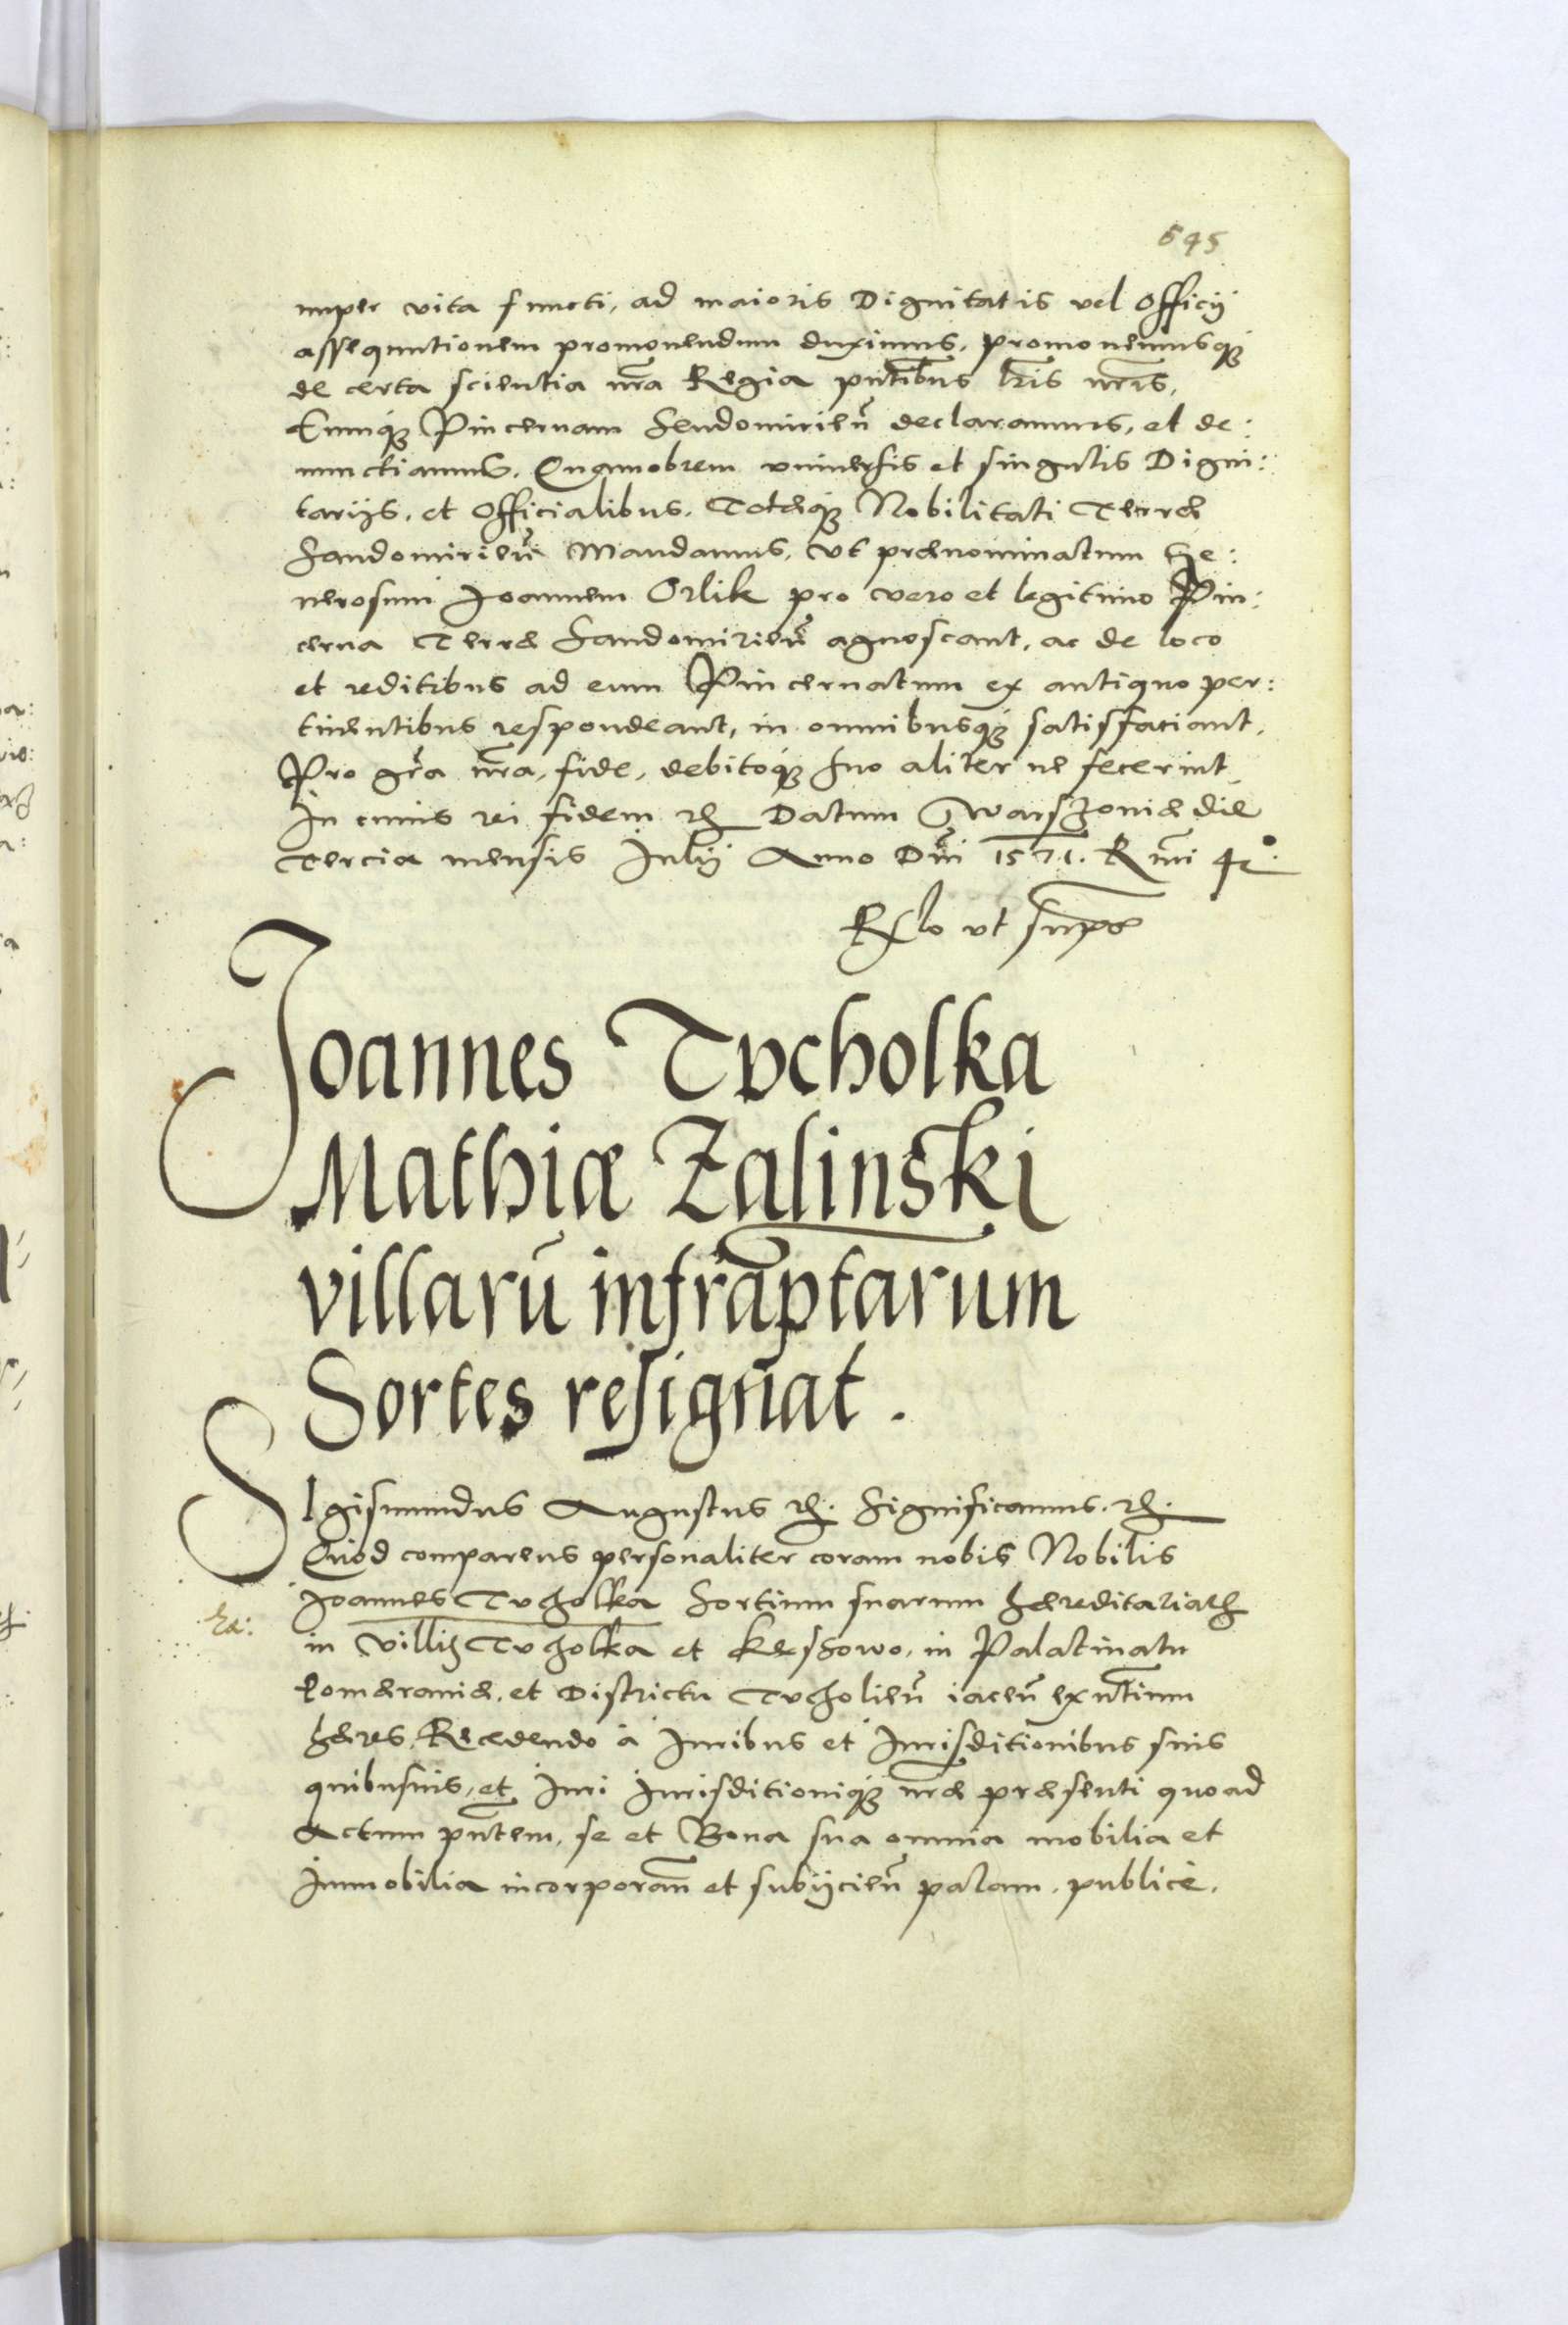 545
nuper vita functi, ad maioris Dignitatis vel Officij
assequutionem promouendum duximus, promouemusq́;
de certa scientia nr̃a Regia pñtibus lr̃is nr̃is,
Eumq́; Pincernam Sendomirieñ declaramus, et de:
nunctiamus. Quamobrem vniuersis et singulis Digni:
tarijs, et Officialibus, Totæq́; Nobilitati Terræ
Sandomirieñ Mandamus, vt prænominatum Ge:
nerosum Joannem Orlik pro vero et legitimo Pin:
cerna Terræ Sandomirieñ agnoscant, ac de loco
et reditibus ad eum Pincernatum ex antiquo per:
tinentibus respondeant, in omnibusq́; satisfaciant,
Pro gr̃a nr̃a, fide, debitoq́; suo aliter ne fecerint
In cuius rei fidem etc Datum Warszouiæ die
Tercia mensis Julij Anno Dñi 1571. R nr̃i 42°.
Rlo vt supra
Joannes Tvcholka
Mathiæ Zalinski
villarũ infrãptarum
Sortes resignat.
SIgismundus Augustus etc. Significamus. etc.
Quod comparens personaliter coram nobis Nobilis
Joannes Tvcholka Sortium suarum hæreditariarꝝ
in Villis Tvcholka et Keszowo, in Palatinatu
Pomæraniæ, et Districtu Tvcholieñ iaceñ exñtium
hæres, Recedendo à Juribus et Jurisditionibus suis
quibusuis, et Juri Jurisditioniq́; nr̃æ præsenti quoad
Actum pñtem, se et Bona sua omnia mobilia et
Immobilia incorporañ et subijcieñ palam, publicè,